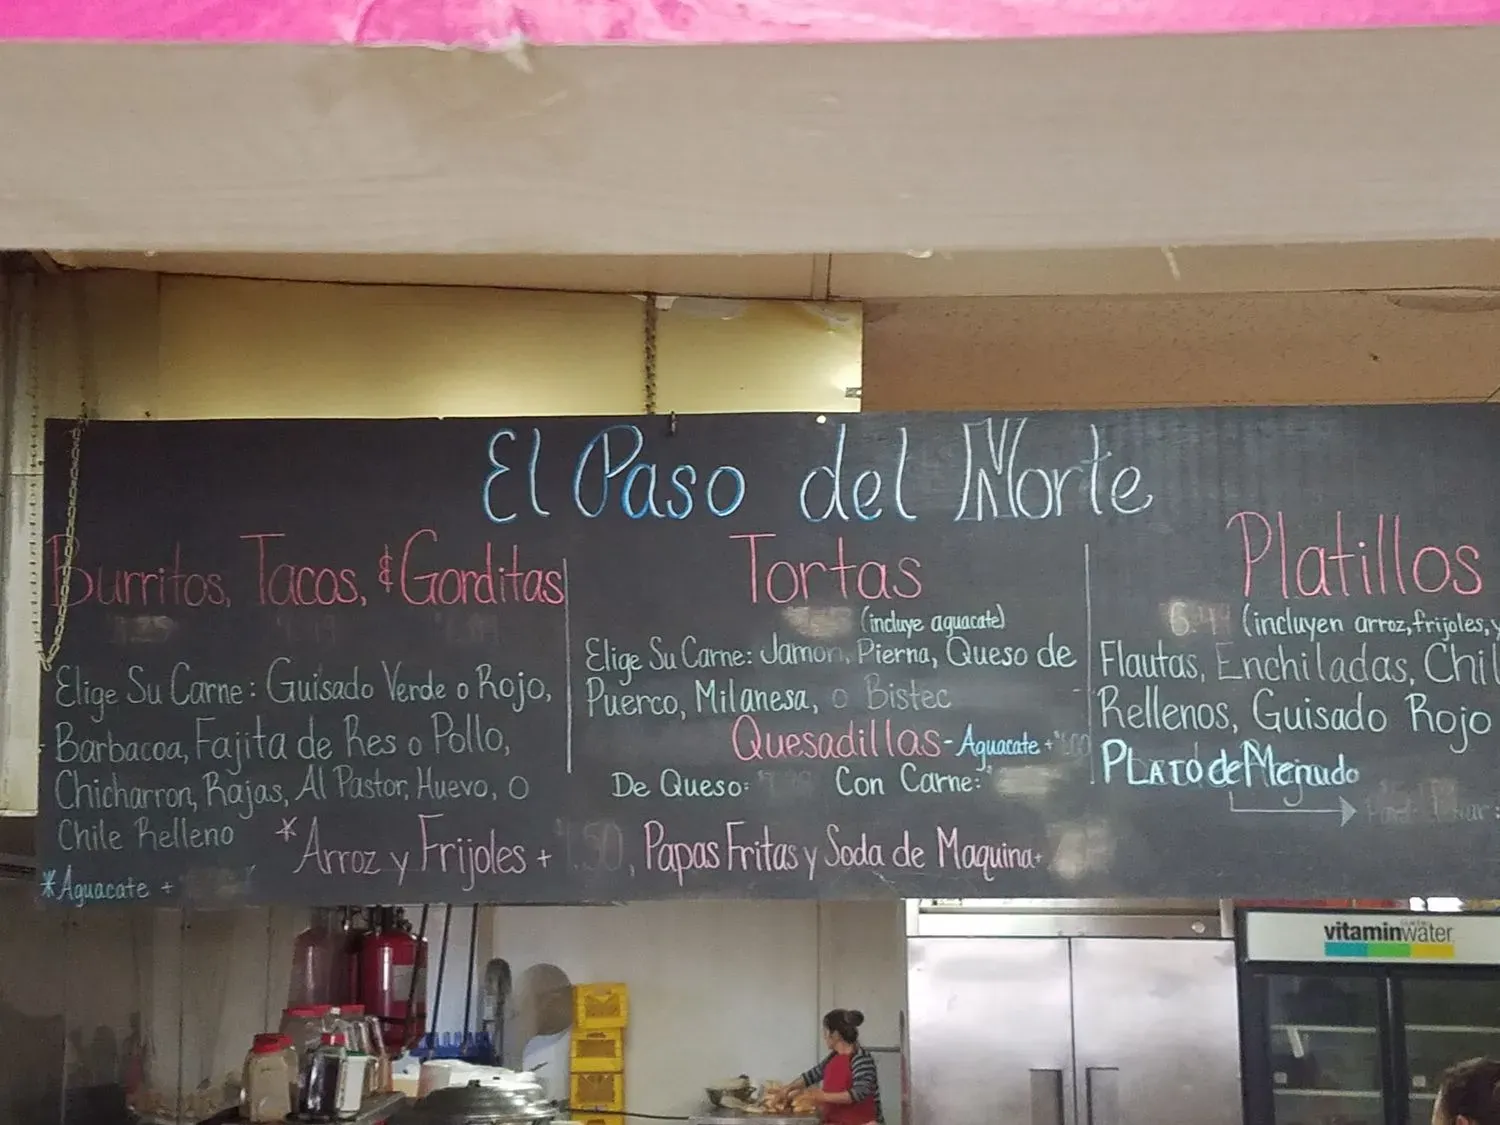 El Paso del Norte
Burritos, Tacos, & Gorditas
Elige Su Carne: Guisado Verde o Rojo,
Barbacoa, Fajita de Res o Pollo,
Chicharron, Rajas, Al Pastor, Huevo, o
Chile Relleno
*Aguacate +
*Arroz y Frijoles + 1.50, Papas Fritas y Soda de Maquina+
Tortas
(incluye aguacate)
Elige Su Carne: Jamon, Pierna, Queso de
Puerco, Milanesa, o Bistec
Quesadillas- Aguacate +
De Queso: Con Carne:
Platillos
(incluyen arroz, frijoles, y
Flautas, Enchiladas, Chil
Rellenos, Guisado Rojo
PLATO de Menudo
vitaminwater